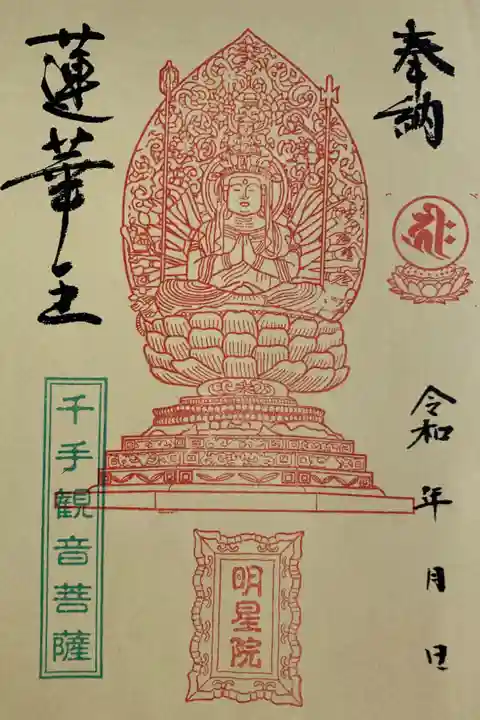 奉納
𑖮𑖿𑖨𑖱𑖾
令和 年 月 日
蓮華王
千手観音菩薩
明星院